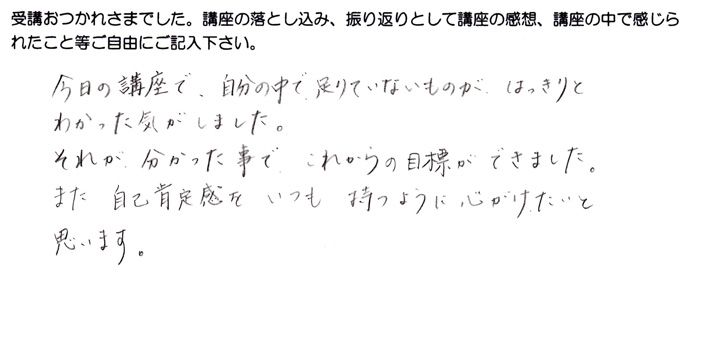 受講おつかれさまでした。講座の落とし込み、振り返りとして講座の感想、講座の中で感じら
れたこと等ご自由にご記入下さい。
今日の講座で、自分の中で足りていないものが はっきりと
わかった気がしました。
それが 分かった事で これからの目標ができました。
また 自己肯定感を いつも 持つように心がけたいと
思います。